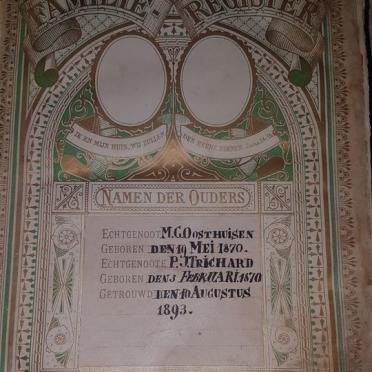 FAMILIE REGISTER
IK EN MIJN HUIS, WIJ ZULLEN DEN HEERE DIENEN. Josua 24:15
NAMEN DER OUDERS
ECHTGENOOT M.C. OOSTHUISEN
GEBOREN DEN 19 MEI 1870.
ECHTGENOOTE P.J. TRICHARD
GEBOREN DEN 3 FEBRUARI 1870
GETROUWD DEN 10 AUGUSTUS
1893.